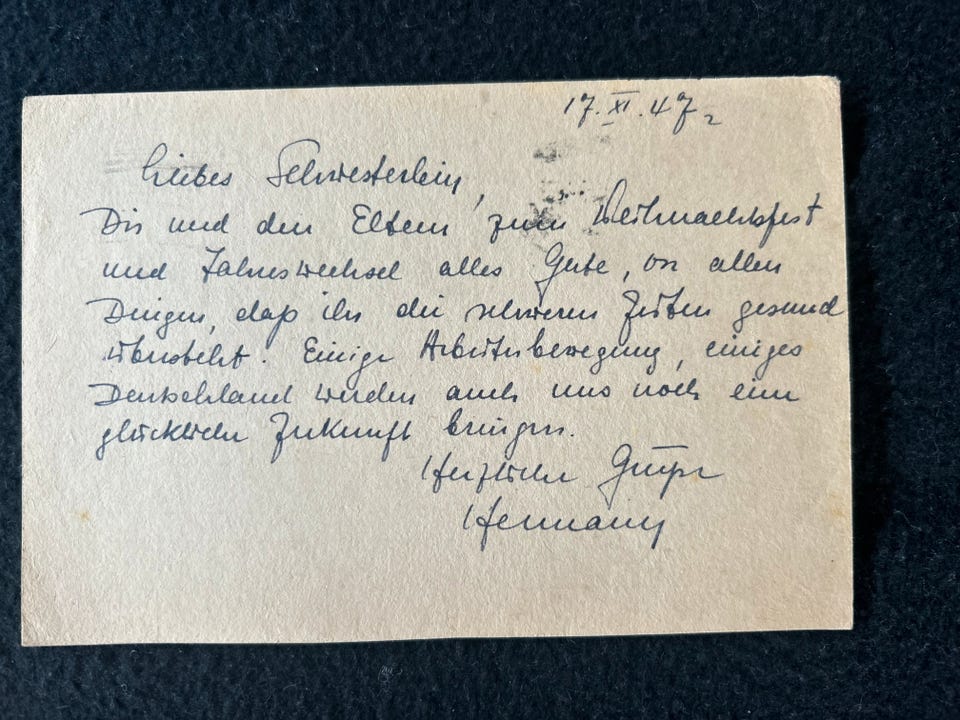 17. XI. 47.
Liebes Schwesterlein,
Dir und den Eltern zum Weihnachtsfest
und Jahreswechsel alles Gute, vor allen
Dingen, daß ihr die schweren Zeiten gesund
übersteht. Einige Arbeiterbewegung, einiges
Deutschland werden auch uns noch eine
glückliche Zukunft bringen.
Herzliche Grüße
Hermann